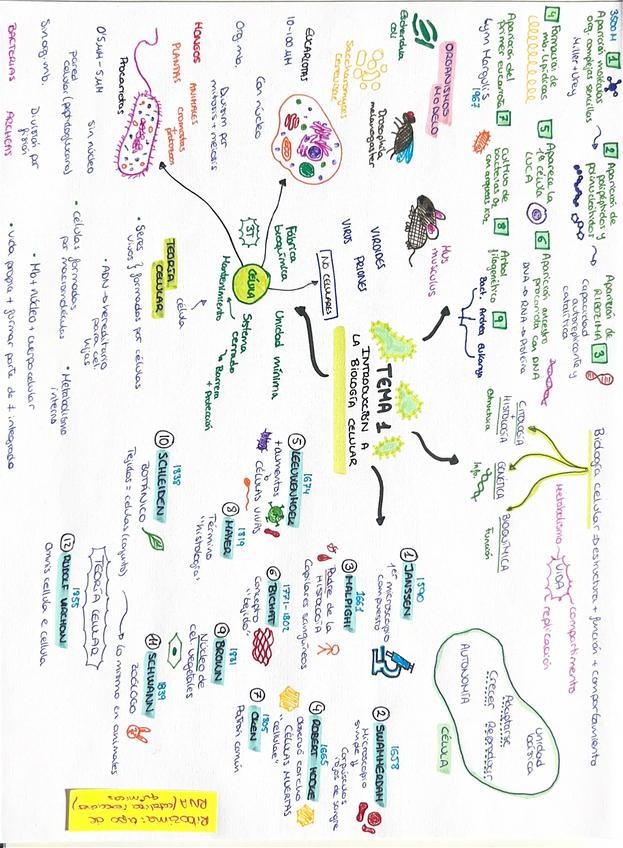 TEMA 1
INTRODUCCIÓN A
LA BIOLOGÍA CELULAR
3500 M
1
Aparición moléculas
org. complejas sencillas
Miller + Urey
2
Aparición de
polipéptidos y
polinucleótidos
Aparición de
RIBOZIMA 3
Capacidad
autoreplicante y
catalítica
4
Formación de
mb. lipídicas
5
Aparece la
1ª célula
LUCA
6
Aparición ancestro
procariotas con DNA
DNA → RNA → Proteína
Aparición del
primer eucariota 7
Lynn Margulis
1967
8
Árbol
filogenético
9
Bact. Archea Eukarya
ORGANISMOS
MODELO
Escherichia
coli
Saccharomyces
cerevisiae
Drosophila
melanogaster
Mus
musculus
NO CELULARES
VIRUS
VIROIDES
PRIONES
CÉLULA
Fábrica
bioquímica
Unidad mínima
Sistema
cerrado
→ Barrera
+ Protección
Mantenimiento
EUCARIOTAS
10-100 µm
Con núcleo
Org. mb.
División por
mitosis + meiosis
HONGOS
ANIMALES
PLANTAS
Procariotas
0'5 µm - 5 µm
Sin núcleo
pared
celular (peptidoglucano)
Sin org. mb.
División por
fisión
BACTERIAS
ARCHEAS
TEORÍA
CELULAR
célula
• Seres vivos formados por células
• ADN → hereditario
para cel.
hijas
• células formadas
por macromoléculas
• Metabolismo
interno
• Mb + Núcleo + cuerpo celular
• Vida propia + formar parte de + integrado
Biología celular → estructura + función + comportamiento
CITOLOGÍA
+
HISTOLOGÍA
Estructura
GENÉTICA
Info.
BIOQUÍMICA
Función
VIDA
Metabolismo
compartimento
replicación
Unidad
básica
Adaptarse
Crecer
Reproducir
AUTONOMÍA
CÉLULA
① JANSSEN
1590
1er microscopio
compuesto
② SWAMMERDAM
1658
Microscopio
simple
Corpúsculos
rojos de sangre
③ MALPIGHI
1661
Padre de la
HISTOLOGÍA
Capilares sanguíneos
④ ROBERT HOOKE
1665
Observó corcho
"cellulae"
CÉLULAS MUERTAS
⑤ LEEUWENHOEK
1674
+ aumentos
CÉLULAS VIVAS
⑥ BICHAT
1771-1802
Concepto
"tejido"
⑦ OKEN
1805
Patrón común
⑧ MAYER
1819
Término
"histología"
⑨ BROWN
1831
Núcleo de
cel. vegetales
⑩ SCHLEIDEN
1838
BOTÁNICO
Tejidos = células (conjunto)
⑪ SCHWANN
1839
ZOÓLOGO
Lo mismo en animales
TEORÍA CELULAR
⑫ RUDOLF VIRCHOW
1855
Omnis cellula e cellula
Ribozima: tipo de
RNA (cataliza reacciones
químicas)